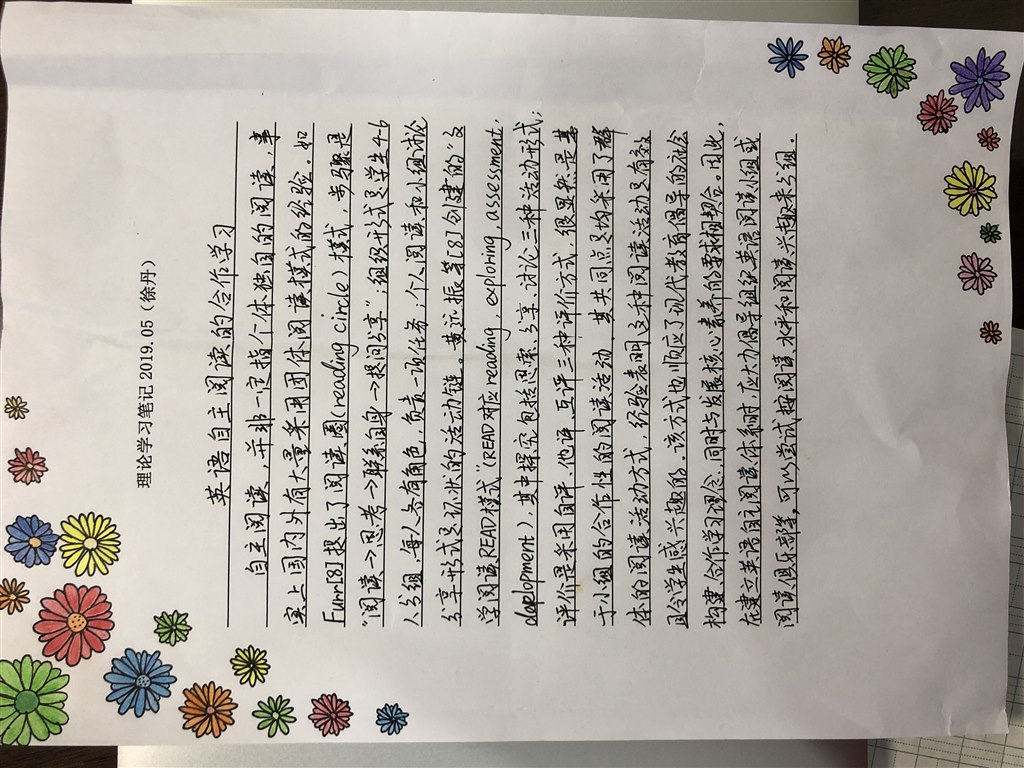 理论学习笔记 2019.05（徐丹）
英语自主阅读的合作学习
自主阅读，并非一定指个体独自的阅读，事
实上国内外有大量采用团体阅读模式的经验。如
Furr[8]提出了阅读圈(reading circle)模式，步骤是
“阅读→思考→联系自身→提问分享”；组织形式是学生4-6
人分组，每人各有角色，负责一项任务；个人阅读和小组讨论
分享形式是环状的活动链。黄远振等[8]创建的“英
学阅读READ模式”(READ对应reading, exploring, assessment,
development)其中探究包括思索、分享、讨论三种活动形式；
评价是采用自评、他评、互评三种评价方式，很显然是基
于小组的合作性的阅读活动，其共同点是均采用了群
体的阅读活动方式，经验表明这种阅读活动是有效
且令学生感兴趣的，该方式也顺应了现代教育倡导的社会
构建、合作学习理念，同时与发展核心素养的要求相契合。因此，
在建立英语自主阅读体系时，应大力倡导组织英语阅读小组或
阅读俱乐部等，可以尝试按阅读水平和阅读兴趣来分组。